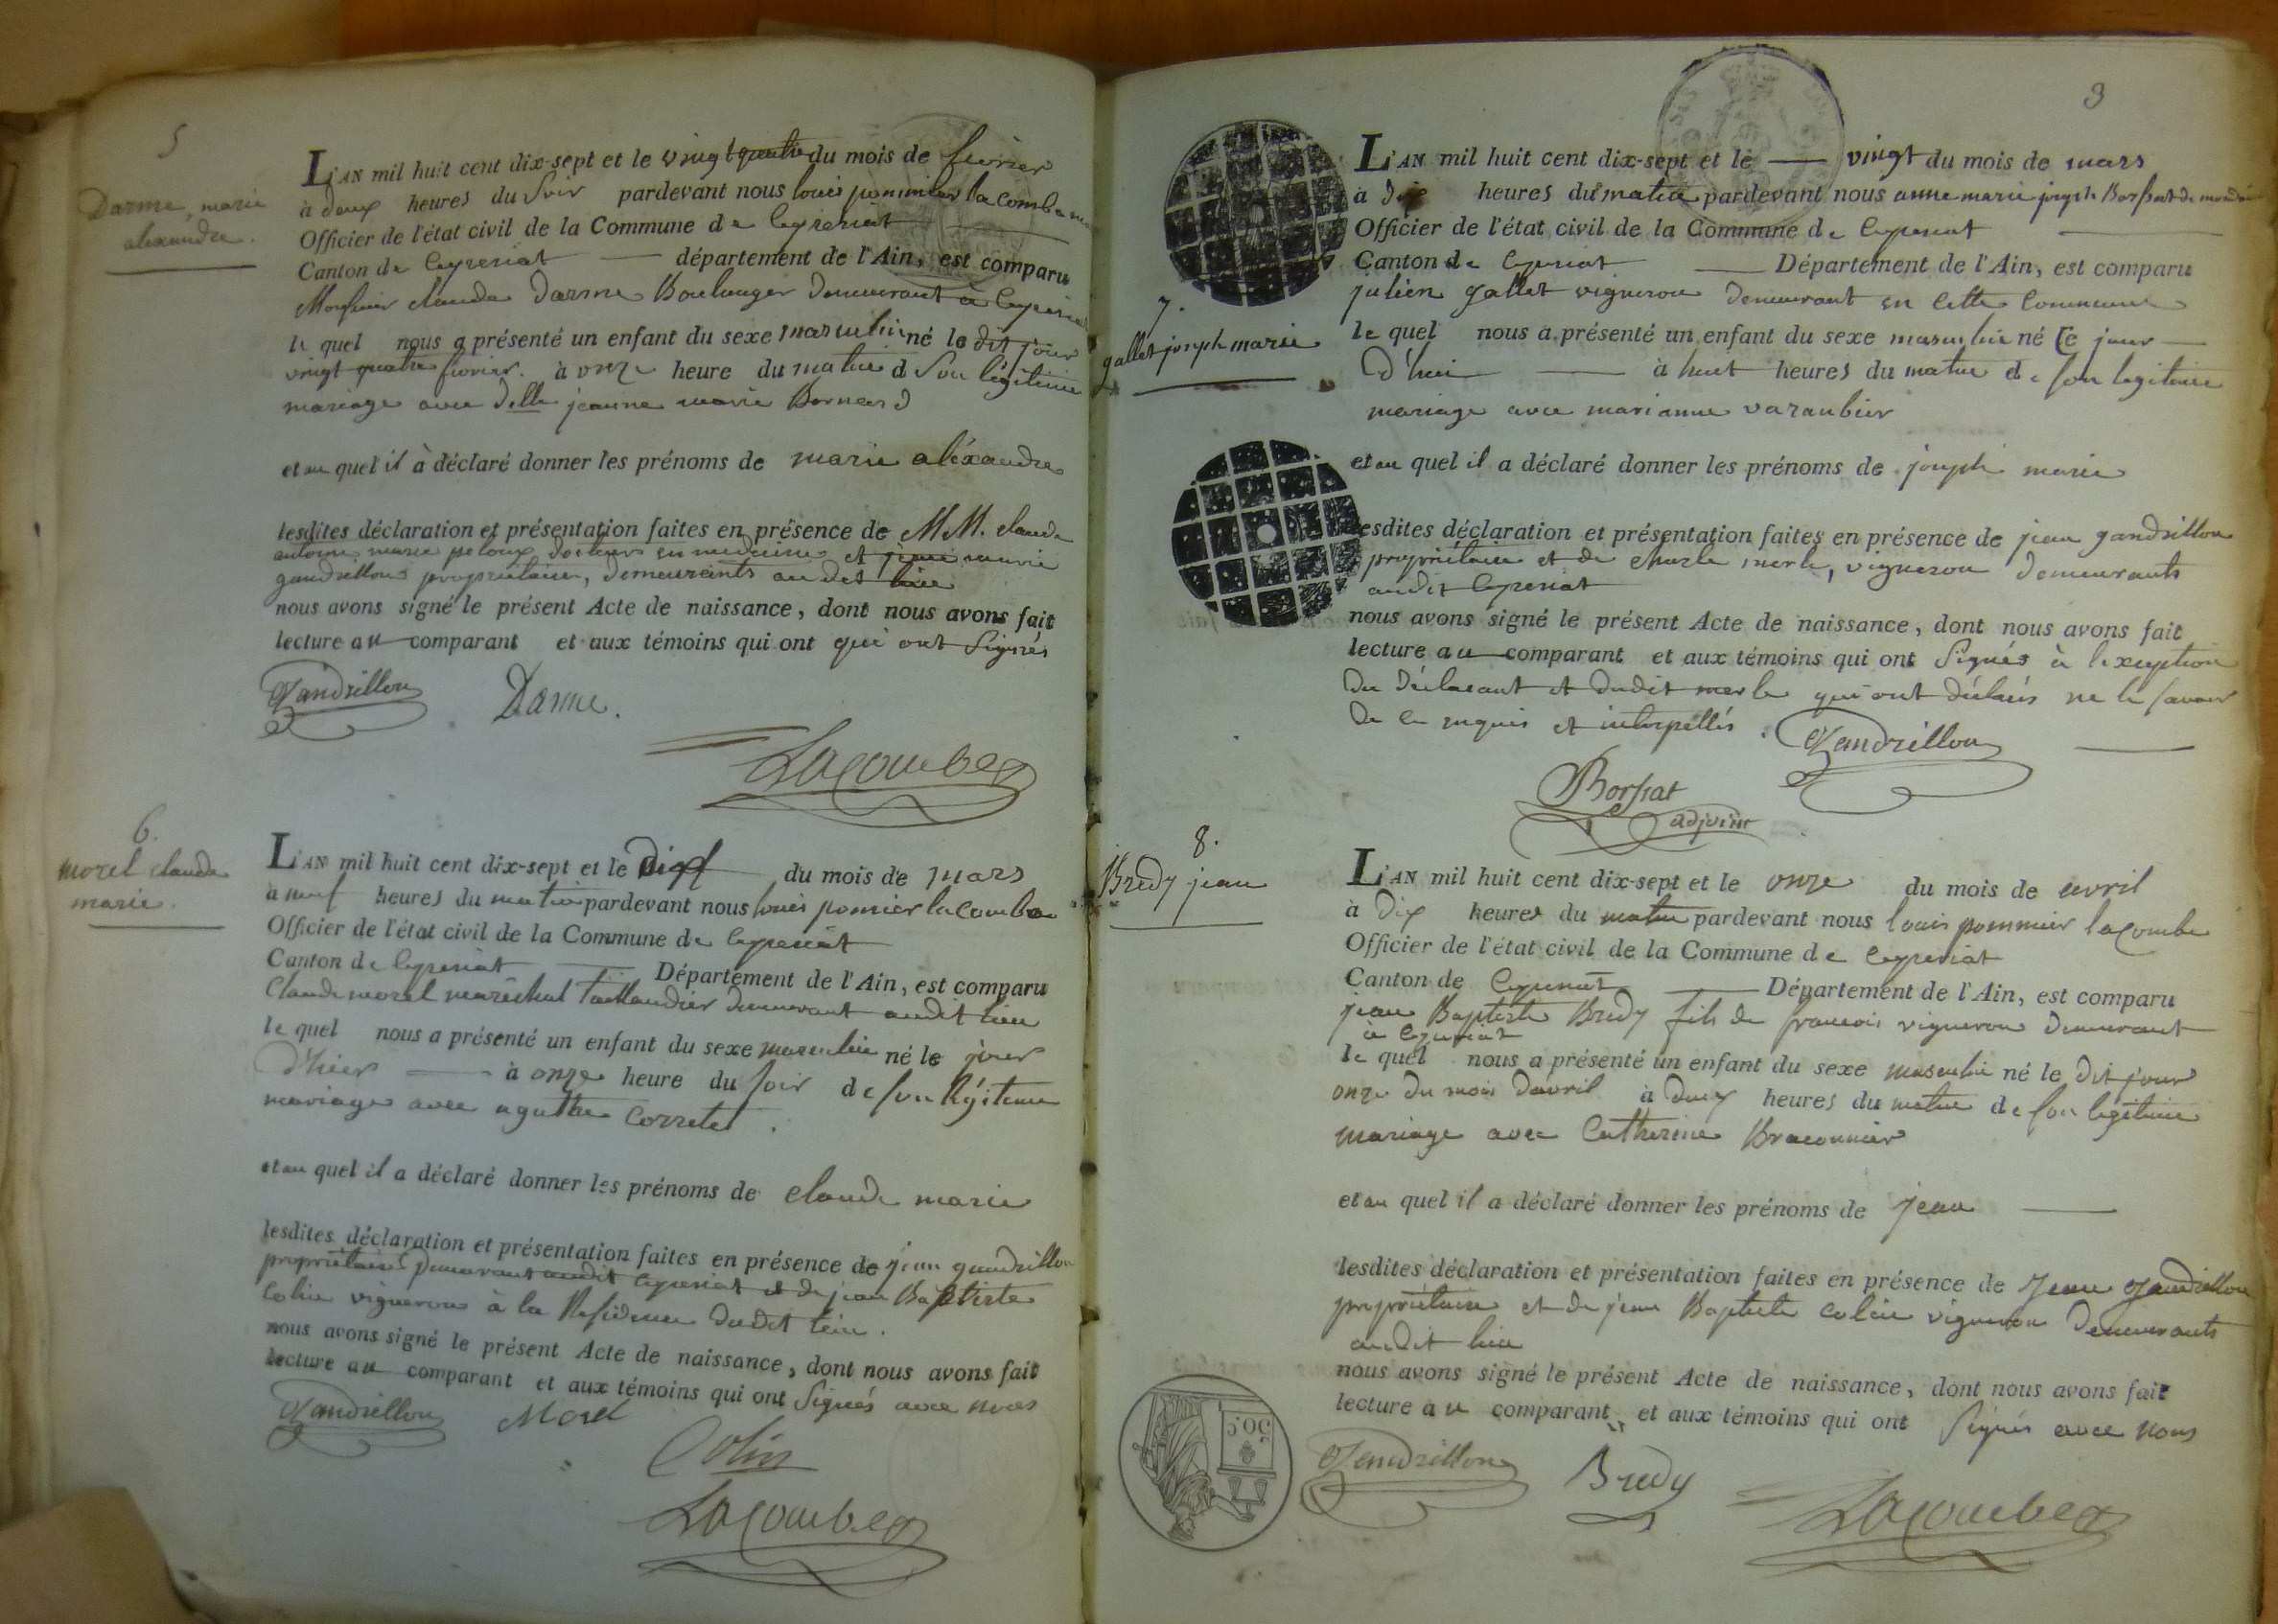 5
Darme, marie
alexandre.
L'AN mil huit cent dix-sept et le vingt quatre du mois de fevrier
à deux heures du soir pardevant nous louis pommier lacombe
Officier de l'état civil de la Commune de Ceyzeriat
Canton de Ceyzeriat département de l'Ain, est comparu
Monsieur claude Darme Boulanger demeurant à Ceyzeriat
le quel nous a présenté un enfant du sexe masculin né le dit jour
vingt quatre fevrier. à onze heure du matin de son légitime
mariage avec Delle jeanne marie Bernard
et au quel il à déclaré donner les prénoms de marie aléxandre
lesdites déclaration et présentation faites en présence de MM. claude
antoine marie peloux docteur en medecine et jean marie
gandrillon propriétaire, demeurants au dit lieu
nous avons signé le présent Acte de naissance, dont nous avons fait
lecture au comparant et aux témoins qui ont qui ont signés
Gandrillon Darme.
Lacombe
6.
morel claude
marie.
L'AN mil huit cent dix-sept et le dix du mois de mars
à neuf heures du matin pardevant nous louis pommier lacombe
Officier de l'état civil de la Commune de Ceyzeriat
Canton de Ceyzeriat Département de l'Ain, est comparu
Claude morel maréchal taillandier demeurant audit lieu
le quel nous a présenté un enfant du sexe masculin né le jour
d'hier à onze heure du soir de son légitime
mariage avec agathe Corretel.
et au quel il a déclaré donner les prénoms de claude marie
lesdites déclaration et présentation faites en présence de jean gandrillon
propriétaire demeurant audit Ceyzeriat et de jean Baptiste
Colin vigneron à la Residence dudit lieu.
nous avons signé le présent Acte de naissance, dont nous avons fait
lecture au comparant et aux témoins qui ont signés avec nous
Gandrillon Morel
Colin
Lacombe
3
7.
gallet joseph marie
L'AN mil huit cent dix-sept et le vingt du mois de mars
à dix heures du matin pardevant nous anne marie joseph Borssat de
Officier de l'état civil de la Commune de Ceyzeriat
Canton de Ceyzeriat Département de l'Ain, est comparu
julien gallet vigneron demeurant en cette Commune
le quel nous a présenté un enfant du sexe masculin né Ce jour
d'hui à huit heures du matin de son legitime
mariage avec marianne varanbier
et au quel il a déclaré donner les prénoms de joseph marie
lesdites déclaration et présentation faites en présence de jean gandrillon
propriétaire et de charle merle, vigneron demeurants
audit Ceyzeriat
nous avons signé le présent Acte de naissance, dont nous avons fait
lecture au comparant et aux témoins qui ont signés à l'exception
du déclarant et dudit merle qui ont déclarés ne le savoir
de ce requis et interpellés. Gandrillon
Borssat
adjoint
8.
Bredy jean
L'AN mil huit cent dix-sept et le onze du mois de avril
à dix heures du matin pardevant nous louis pommier lacombe
Officier de l'état civil de la Commune de Ceyzeriat
Canton de Ceyzeriat Département de l'Ain, est comparu
jean Baptiste Bredy fils de francois vigneron demeurant
à Ceyzeriat
le quel nous a présenté un enfant du sexe masculin né le dit jour
onze du mois d'avril à deux heures du matin de son legitime
mariage avec Catherine Braconnier
et au quel il a déclaré donner les prénoms de jean
lesdites déclaration et présentation faites en présence de Jean Gandrillon
propriétaire et de jean Baptiste colin vigneron demeurants
audit lieu
nous avons signé le présent Acte de naissance, dont nous avons fait
lecture au comparant et aux témoins qui ont signés avec nous
50 C
Gandrillon Bredy
Lacombe